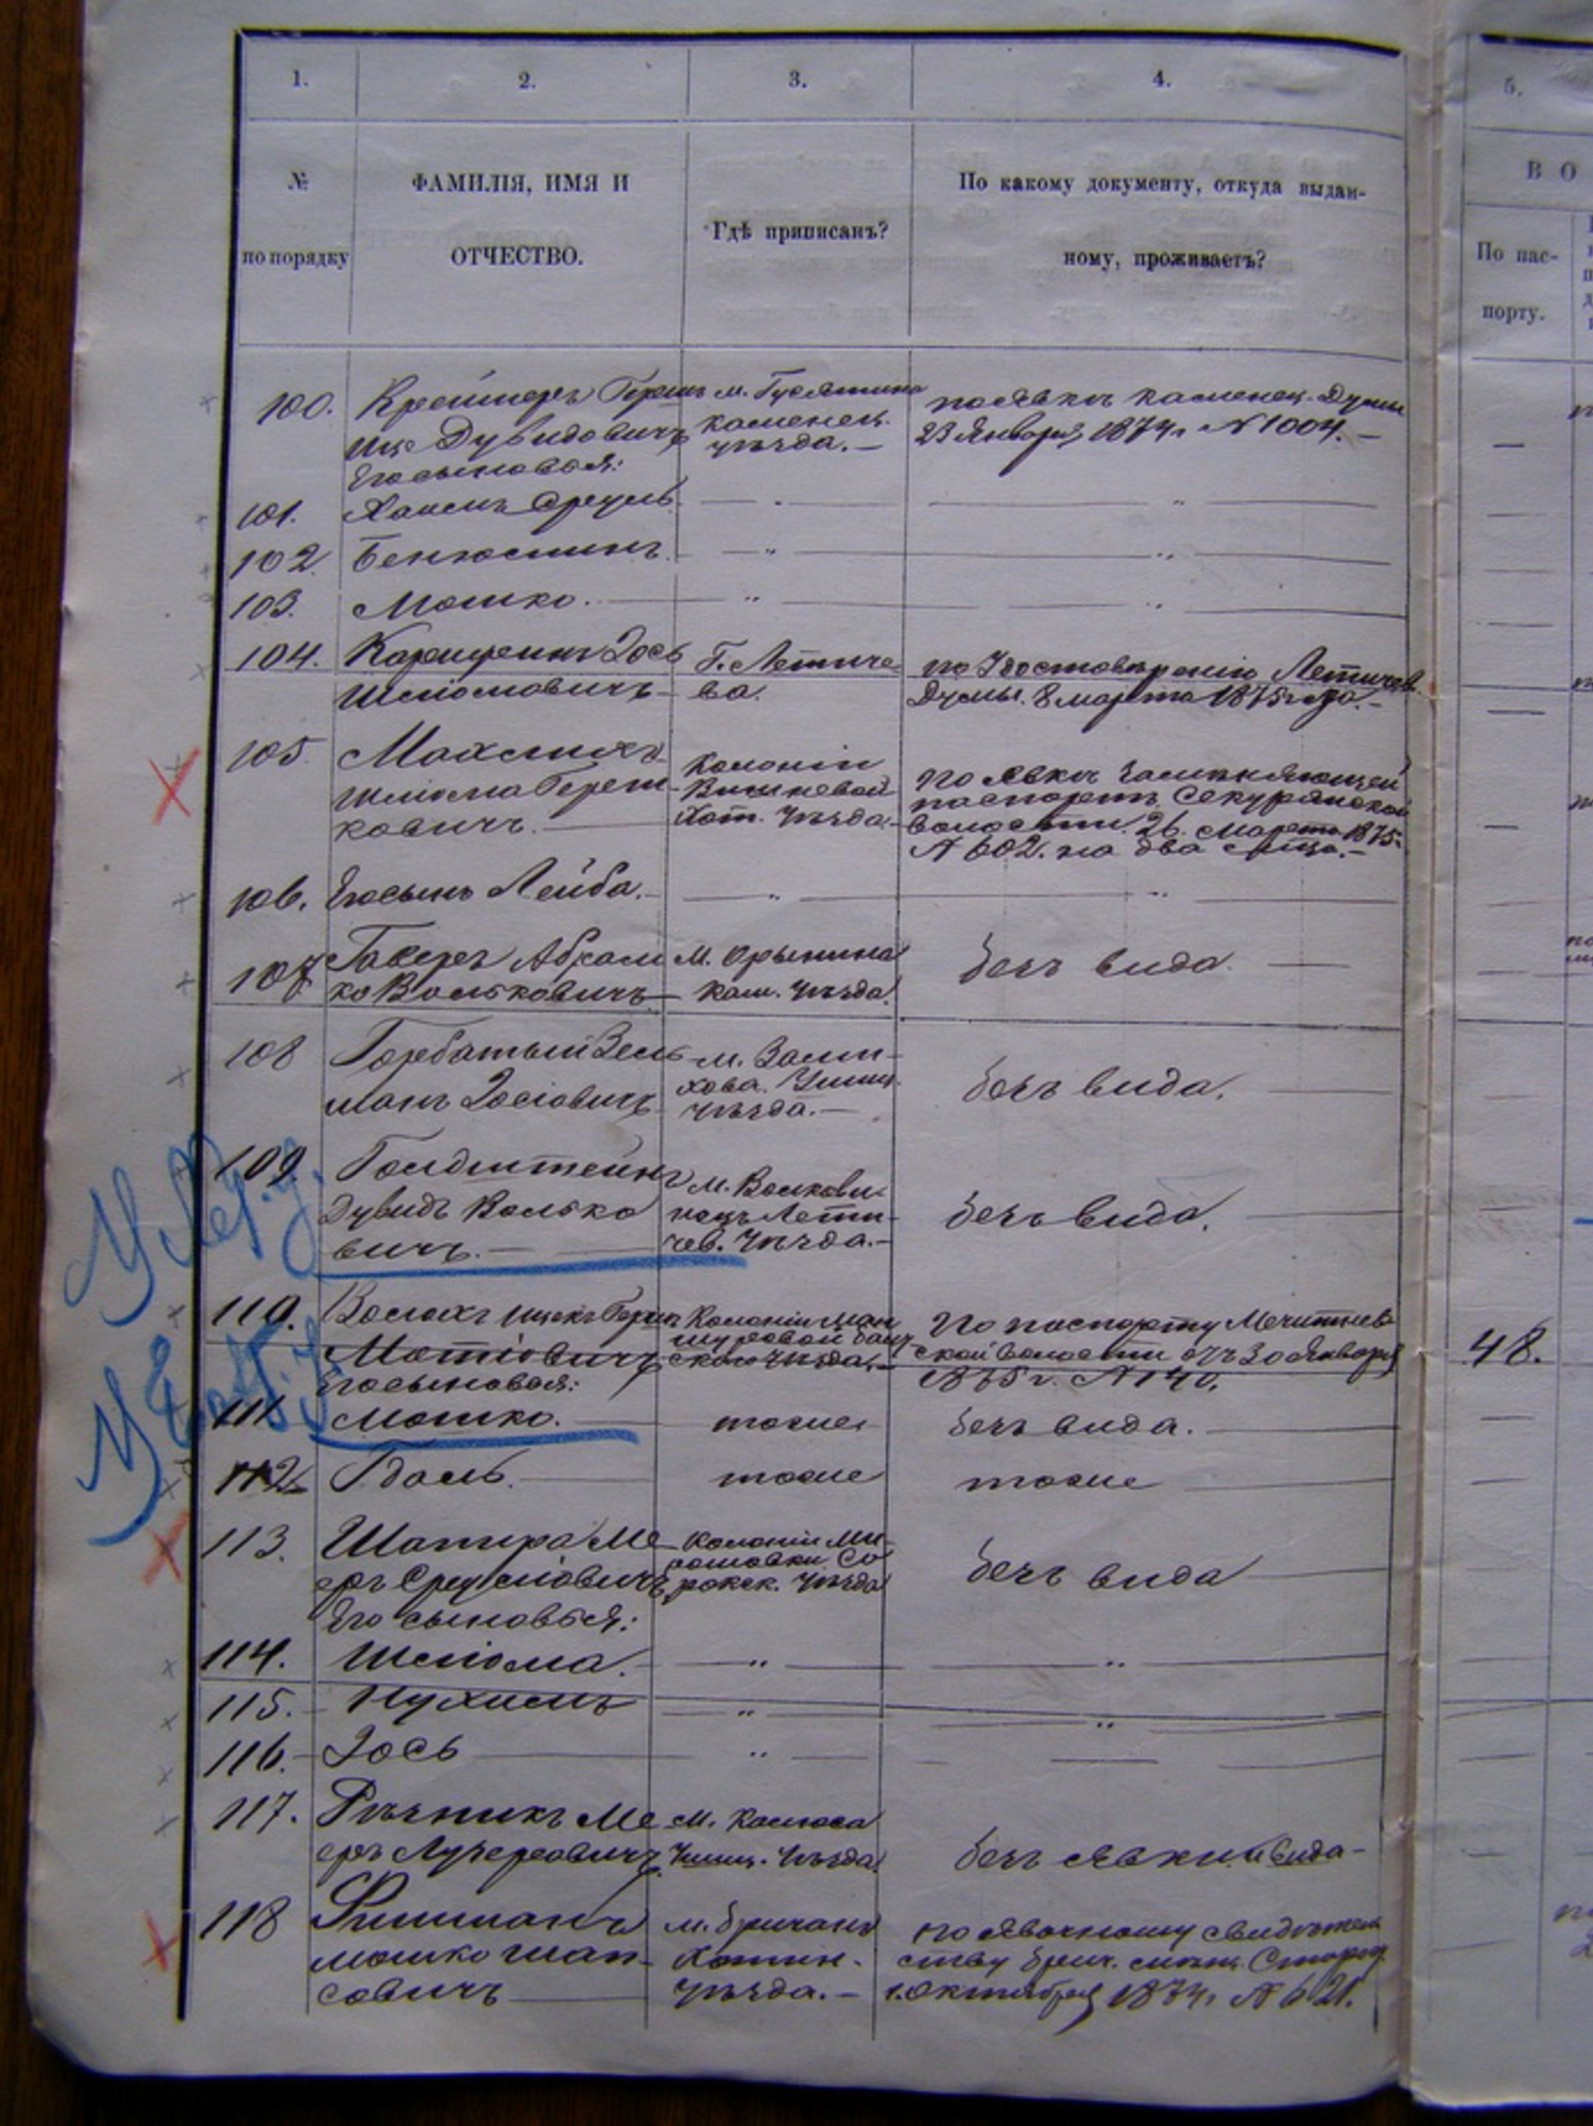 1.
2.
3.
4.
5.
№
по порядку
ФАМИЛІЯ, ИМЯ И
ОТЧЕСТВО.
Гдѣ приписанъ?
По какому документу, откуда выдан-
ному, проживаетъ?
В О
По пас-
порту.
100.
Дувидовичъ
м. Гусятина
каменец.
уѣзда.
по явкѣ каменец. Думы
23 Января 1874 г № 1004.
101.
Хаимъ Сруль
102
Бенюминъ
103.
Мошко.
104.
Іось
Шліомовичъ
Г. Летиче
ва.
по Удостовѣренію Летичев.
Думы. 8 марта 1875 года.
105
Шліома Герш
ковичъ.
Колоніи
Вишневой
Хот. Уѣзда
По явкѣ
паспортъ Секурянской
волости 26 Марта 1875 г
№ 602. на два
106.
Его сынъ Лейба.
107
Абрам
ко Вольковичъ
М. Орынина
Кам. Уѣзда
безъ вида.
108
Горбатый Зель
манъ Іосіовичъ
м. Зами-
хова. Ушиц.
уѣзда.
безъ вида.
109.
Гольдштейнъ
Дувидъ Волько
вичъ.
м. Волкови
нецъ Лети-
чев. Уѣзда.
безъ вида.
110.
Волохъ Ицекъ Герш
Мотіовичъ
Его сыновья:
Колоніи
уѣзда.
По паспорту
ской волости отъ 30 Января
1875 г. № 140.
48.
111
Мошко.
тоже
безъ вида.
112
Гдаль.
тоже
тоже
113.
Шапира Ме
еръ Сруліовичъ
Его сыновья:
Колоніи Ми-
рошовки Со
рокск. Уѣзда
безъ вида
114.
Шліома.
115.
Нухимъ
116.
Іось
117.
Рѣзникъ Ме
еръ Лузеровичъ
м. Калюса
Ушиц. Уѣзда
безъ явки и вида
118
Мошко Шап-
совичъ
м. Бричанъ
Хотин.
Уѣзда.
по явочному свидѣтель
ству Брич. мѣщ. Старост
1. Октября 1874 г № 621.